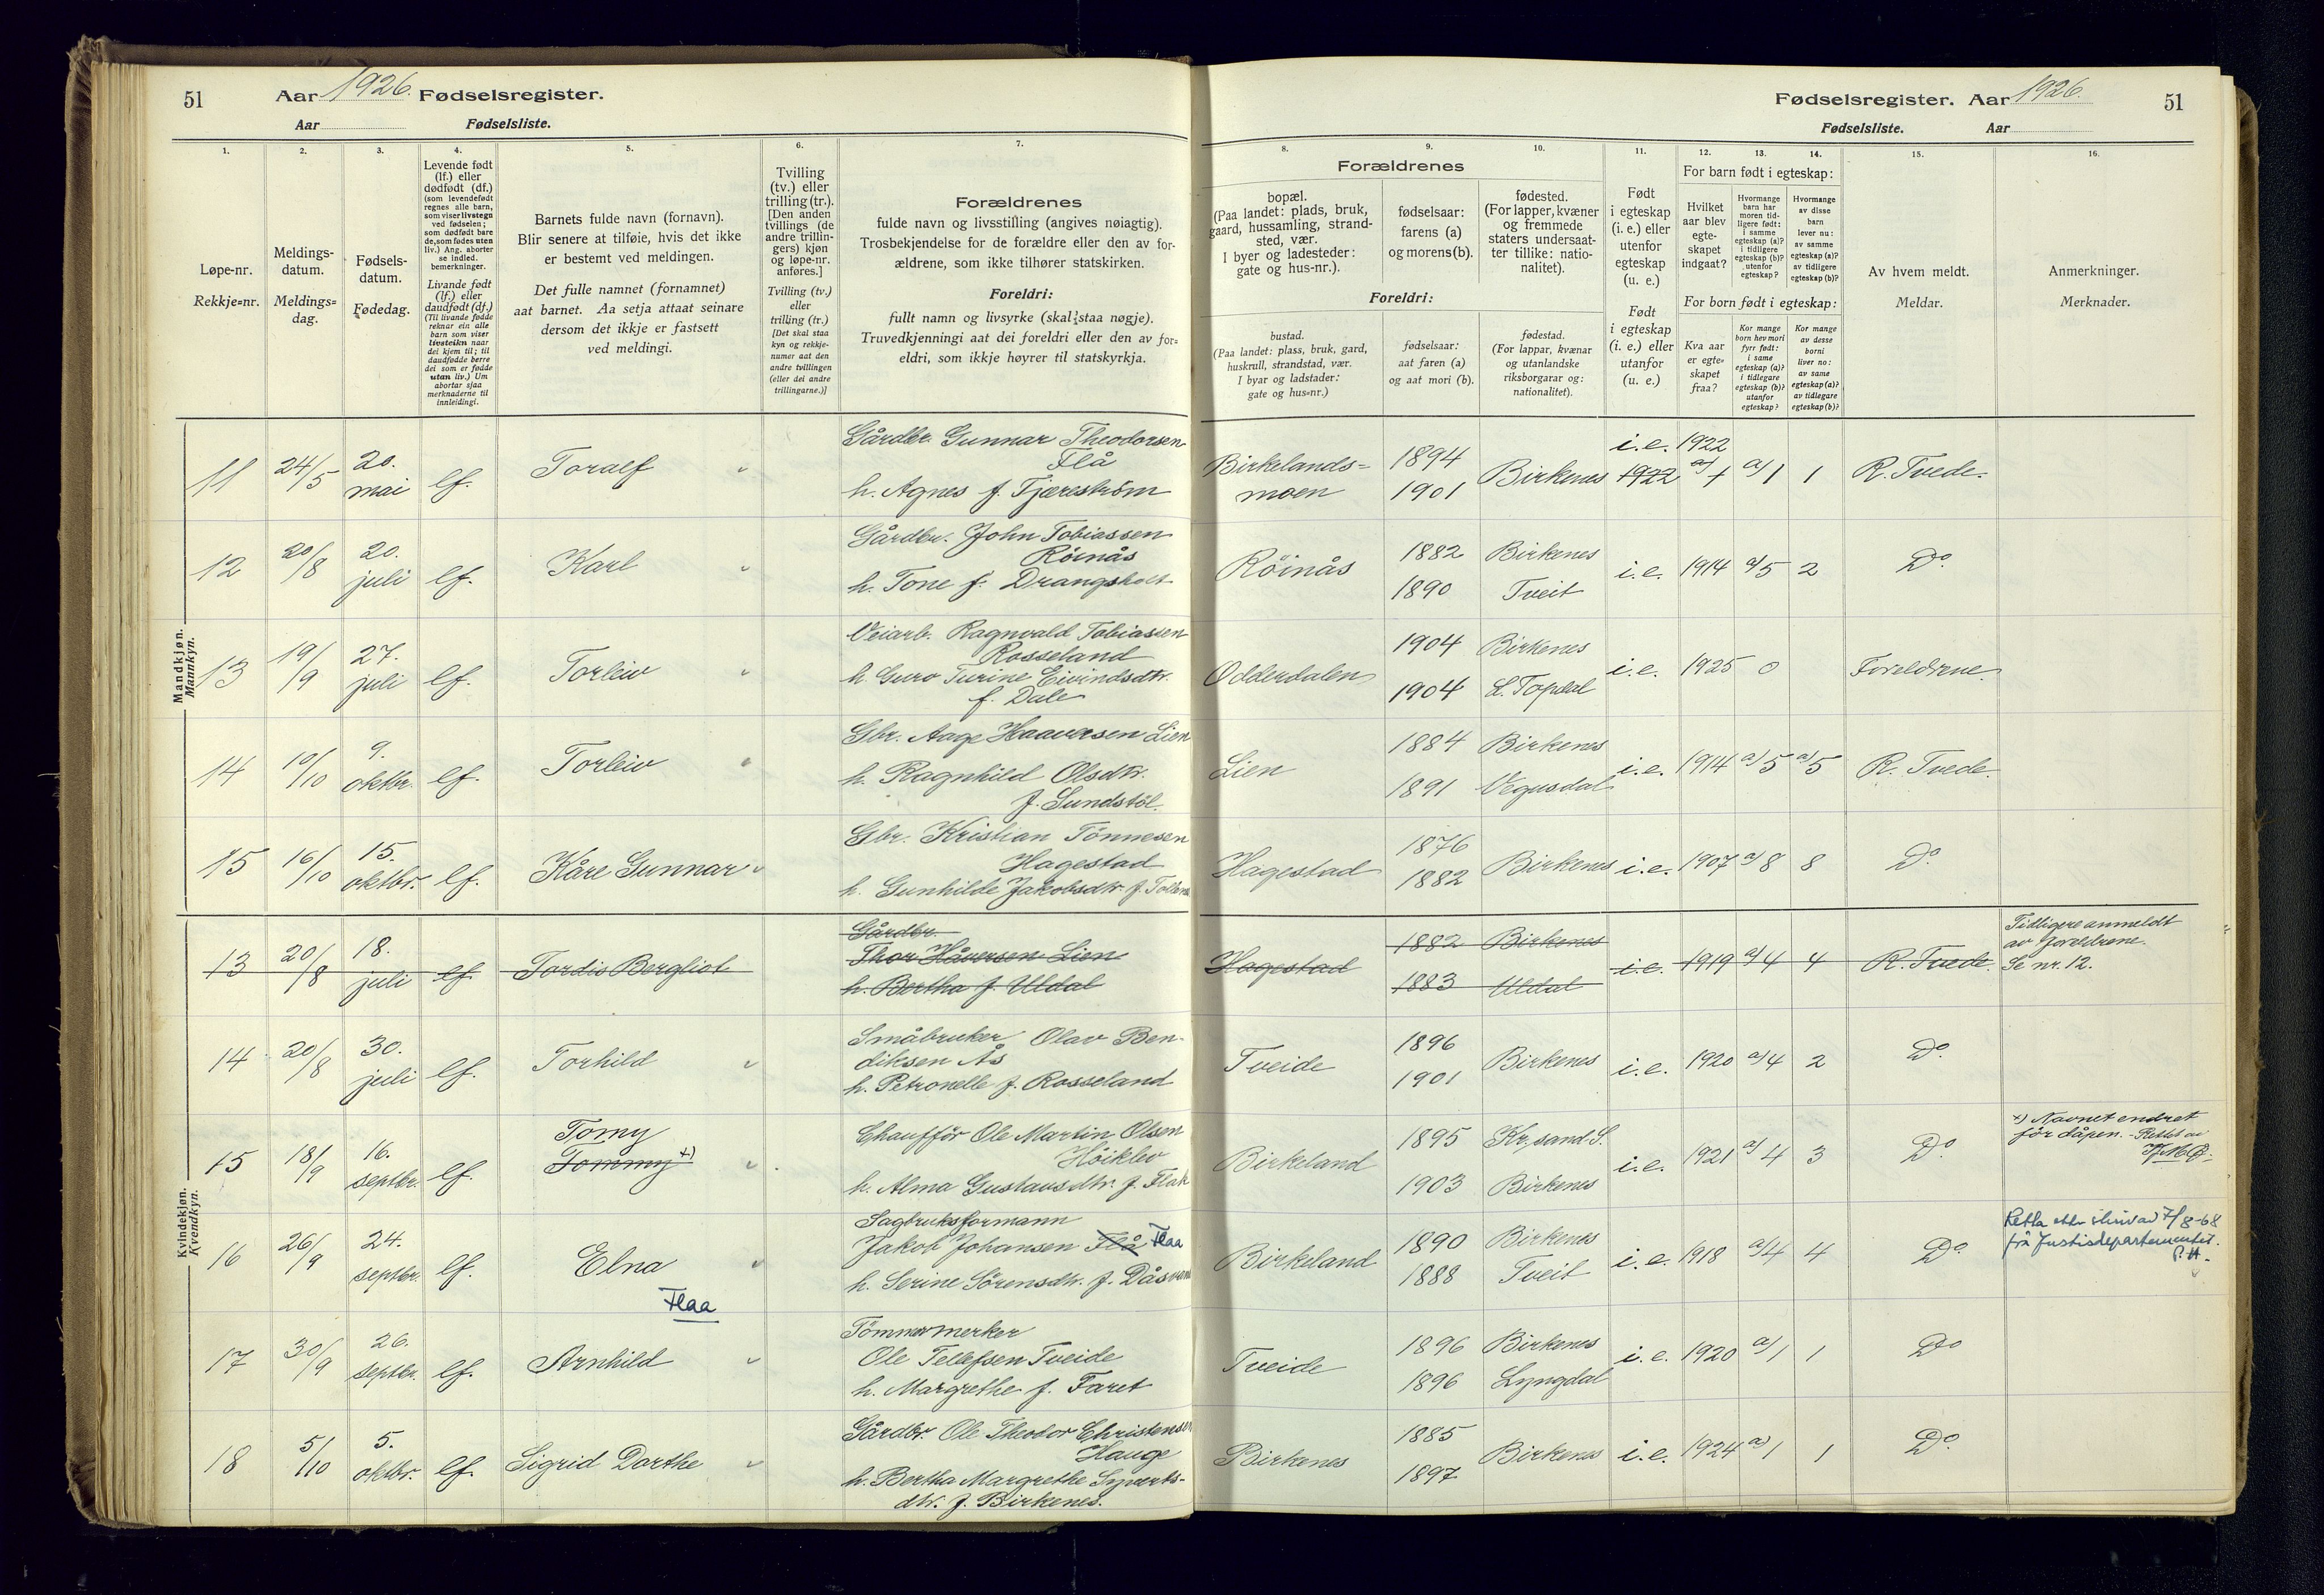 51 Aar 1926. Fødselsregister.
Aar Fødselsliste.
Fødselsregister. Aar 1926. 51
Fødselsliste. Aar
1.
Løpe-nr.
Rekkje=nr.
2.
Meldings-
datum.
Meldings=
dag.
3.
Fødsels-
datum.
Fødedag.
4.
Levende født
(lf.) eller
dødfødt (df.)
(som levendefødt
regnes alle barn,
som viser livstegn
ved fødselen;
som dødfødt bare
de, som fødes uten
liv.) Ang. aborter
se indled.
bemerkninger.
Livande født
(lf.) eller
daudfødt (df.)
(Til livande fødde
reknar ein alle
barn som viser
livsteikn naar
dei kjem til; til
daudfødde berre
dei som er fødde
utan liv.) Um
abortar sjaa
merknaderne til
innleidingi.
5.
Barnets fulde navn (fornavn).
Blir senere at tilføie, hvis det ikke
er bestemt ved meldingen.
Det fulle namnet (fornamnet)
aat barnet. Aa setja attaat seinare
dersom det ikkje er fastsett
ved meldingi.
6.
Tvilling
(tv.) eller
trilling (tr.).
[Den anden
tvillings (de
andre trillin-
gers) kjøn
og løpe-nr.
anføres.]
Tvilling (tv.)
eller
trilling (tr.)
[Det skal staa
kyn og rekkje-
numer aat den
andre tvillingen
(eller dei andre
trillingarne.)]
7.
Forældrenes
fulde navn og livsstilling (angives nøiagtig).
Trosbekjendelse for de forældre eller den av for-
ældrene, som ikke tilhører statskirken.
Foreldri:
fullt namn og livsyrke (skal staa nøgje).
Truvedkjenningi aat dei foreldri eller den av for=
eldri, som ikkje høyrer til statskyrkja.
Forældrenes
8.
bopæl.
(Paa landet: plads, bruk,
gaard, hussamling, strand-
sted, vær.
I byer og ladesteder:
gate og hus-nr.).
9.
fødselsaar:
farens (a)
og morens (b).
10.
fødested.
(For lapper, kvæner
og fremmede
staters undersaat-
ter tillike: natio-
nalitet).
Foreldri:
bustad.
(Paa landet: plass, bruk, gard,
huskrull, strandstad, vær.
I byar og ladstader:
gate og hus=nr.)
fødselsaar:
aat faren (a)
og aat mori (b).
fødestad.
(For lappar, kvænar
og utanlandske
riksborgarar og:
nationalitet).
11.
Født
i egteskap
(i. e.) eller
utenfor
egteskap
(u. e.)
Født
i egteskap
(i. e.) eller
utanfor
(u. e.)
12. 13. 14.
For barn født i egteskap:
Hvilket
aar blev
egte-
skapet
indgaat?
Hvormange
barn har
moren tid-
ligere født:
i samme
egteskap (a)?
i tidligere
egteskap (b)?
utenfor
egteskap?
Hvormange
av disse
barn
lever nu:
av samme
egteskap (a)?
av tidligere
egteskap (b)?
For born født i egteskap:
Kva aar
er egte=
skapet
fraa?
Kor mange
born hev mori
fyrr født:
i same
egteskap (a)?
i tidlegare
egteskap (b)?
utanfor
egteskap?
Kor mange
av desse
borni
liver no:
av same
egteskap (a)?
av tidlegare
egteskap (b)?
15.
Av hvem meldt.
Meldar.
16.
Anmerkninger.
Merknader.
Mandkjøn.
Mannkyn.
11 24/5 20. mai lf. Toralf
Gårdbr. Gunnar Theodorsen
Flå
h. Agnes f. Tjæreström
Birkelands=
moen
1894
1901
Birkenes
i.e. 1922
1922 a) 1 a) 1 1 R. Tvede.
12 20/8 20. juli lf. Karl
Gårdbr. John Tobiassen
Röinås
h. Tone f. Drangsholt
Röinås
1882 Birkenes
1890 Tveit
i.e. 1914 a) 5 2 Do.
13 19/9 27. juli lf. Torleiv
Veiarb. Ragnvald Tobiassen
Rosseland
h. Guro Turine Eivindsdtr.
f. Dale
Odderdalen
1904 Birkenes
1904 L. Topdal
i.e. 1925 0 Foreldrene.
14 10/10 9. oktbr. lf. Torleiv
Gbr. Aage Haaversen Lien
h. Ragnhild Olsdtr.
f. Sundstöl.
Lien
1884 Birkenes
1891 Vegusdal
i.e. 1914 a) 5 a) 5 R. Tvede.
15 16/10 15. oktbr. lf. Kåre Gunnar
Gbr. Kristian Tönnesen
Hagestad
h. Gunhilde Jakobsdtr. f.
Hagestad
1876
1882
Birkenes
i.e. 1907 a) 8 8 Do.
Kvindekjøn.
Kvendkyn.
13 20/8 18. juli lf. Tordis Bergliot
Gårdbr.
Thor Håversen Lien
h. Bertha f. Uldal
Hagestad
1882 Birkenes
1883 Uldal
i.e. 1919 a) 4 4 R. Tvede.
Tidligere anmeldt
av foreldrene.
Se nr. 12.
14 20/8 30. juli lf. Torhild
Småbruker Olav Ben-
diksen Ås
h. Petronelle f. Rosseland
Tveide
1896
1901
Birkenes
i.e. 1920 a) 4 2 Do.
15 18/9 16. septbr. lf.
Tomy
Tommy x)
Chaufför Ole Martin Olsen
Höiklev
h. Alma Gustavsdtr. f. Flak
Birkeland
1895 Kr.sand S.
1903 Birkenes
i.e. 1921 a) 4 3 Do.
x) Navnet endret
för dåpen. - Rettet av
16 26/9 24. septbr. lf. Elna
Flaa
Sagbruksformann
Jakob Johansen Flå Flaa
h. Serine Sörensdtr. f. Dåsvann
Birkeland
1890 Birkenes
1888 Tveit
i.e. 1918 a) 4 4 Do.
Retta etter skriv av 7/8-68
frå Justisdepartementet.
P.H.
17 30/9 26. septbr. lf. Arnhild
Tömmermerker
Ole Tellefsen Tveide
h. Margrethe f. Faret
Tveide
1896 Birkenes
1896 Lyngdal
i.e. 1920 a) 1 1 Do
18 5/10 5. oktbr. lf. Sigrid Dorthe
Gårdbr. Ole Theodor Christensen
Hauge
h. Bertha Margrethe Syverts-
dtr. f. Birkenes.
Birkenes
1885
1897
Birkenes
i.e. 1924 a) 1 1 Do.